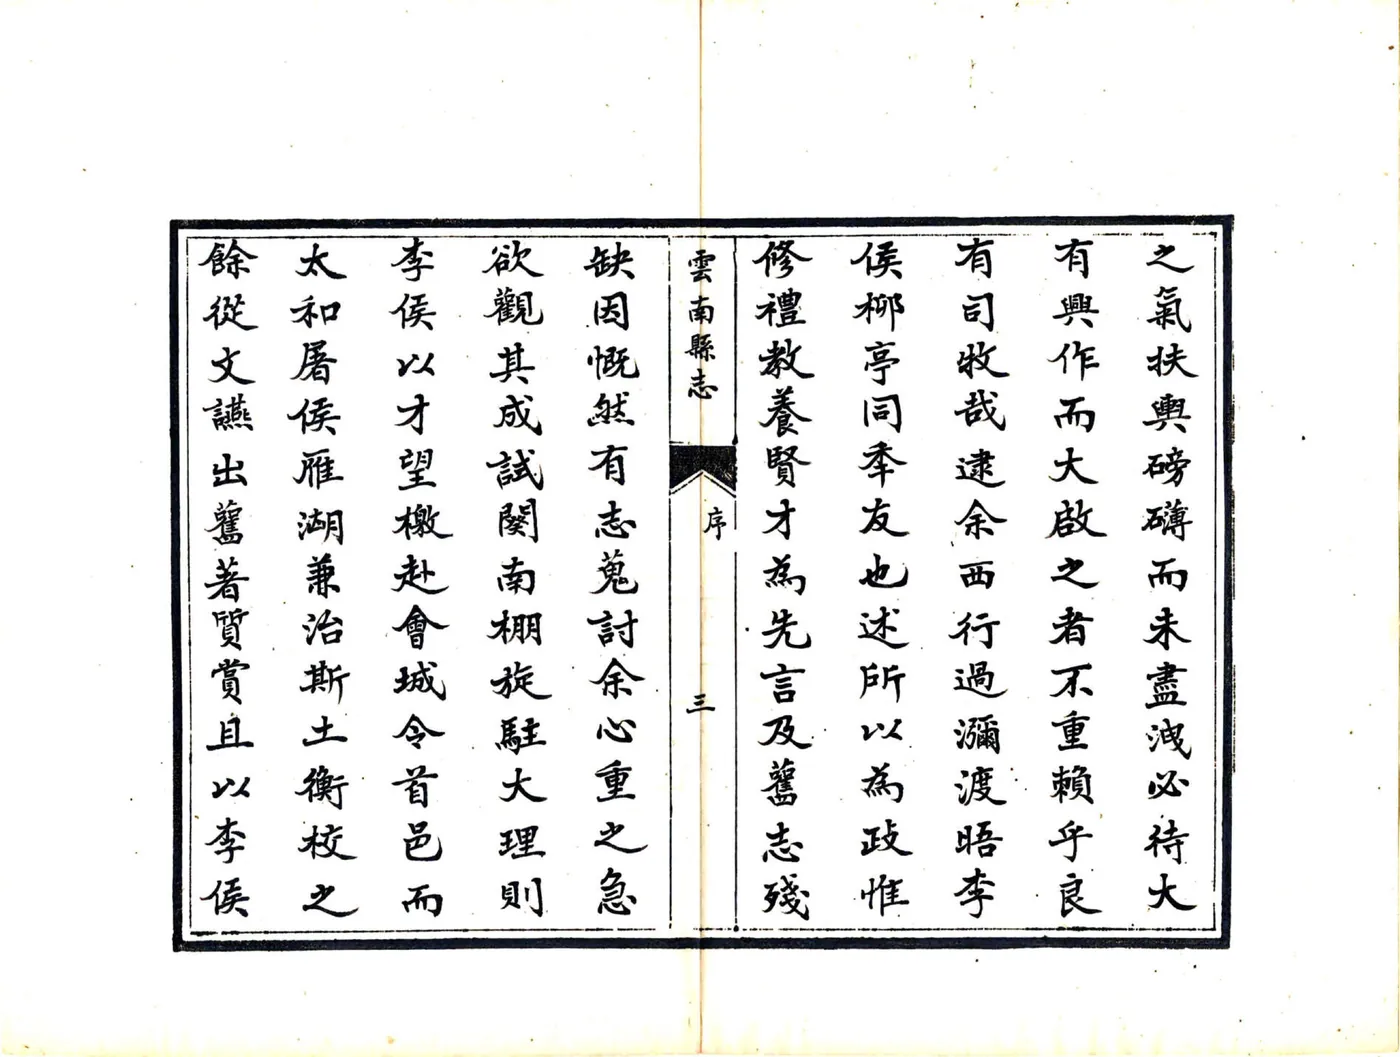 之氣扶輿磅礴而未盡洩必待大
有興作而大啟之者不重賴乎良
有司牧哉逮余西行過瀰渡晤李
侯柳亭同年友也述所以為政惟
修禮教養賢才為先言及舊志殘
雲南縣志
序
三
缺因慨然有志蒐討余心重之急
欲觀其成試閱南棚旋駐大理則
李侯以才望檄赴會城令首邑而
太和屠侯雁湖兼治斯土衡校之
餘從文讌出舊著質賞且以李侯